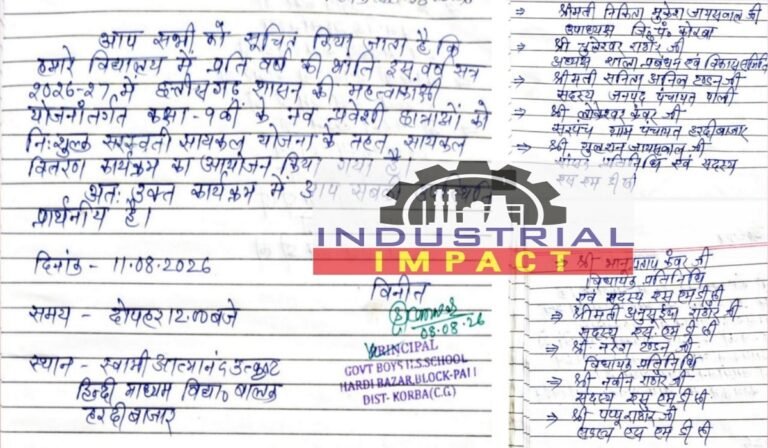 आप सभी को सूचित किया जाता है कि
हमारे विद्यालय में प्रति वर्ष की भांति इस वर्ष सत्र
2026-27 में छत्तीसगढ़ शासन की महत्वाकांक्षी
योजनांतर्गत कक्षा-9वीं के नव प्रवेशी छात्राओं को
निःशुल्क सरस्वती सायकल योजना के तहत सायकल
वितरण कार्यक्रम का आयोजन किया गया है।
अतः उक्त कार्यक्रम में आप सबकी
प्रार्थनीय है।
दिनांक - 11.08.2026
समय - दोपहर 12.00 बजे
स्थान - स्वामी आत्मानंद उत्कृष्ट
हिन्दी माध्यम विद्या० बालक
हरदीबाजार
विनीत
08.08.26
PRINCIPAL
GOVT BOYS H.S.SCHOOL
HARDI BAZAR,BLOCK-PALI
DIST- KORBA(C.G)
INDUSTRIAL
IMPACT
⇒ श्रीमती निकिता मुकेश जायसवाल जी
उपाध्यक्ष जि० पं० कोरबा
⇒ श्री राठौर जी
अध्यक्ष शाला प्रबंधन एवं विकास समिति
⇒ श्रीमती सविता अनिल टण्डन जी
सदस्य जनपद पंचायत पाली
⇒ श्री लोकेश्वर कंवर जी
सरपंच ग्राम पंचायत हरदीबाजार
⇒ श्री जायसवाल जी
प्रतिनिधि एवं सदस्य
एस एम डी सी
⇒ श्री भानु प्रताप कंवर जी
विधायक प्रतिनिधि
एवं सदस्य एस एम डी सी
⇒ श्रीमती अनुसुईया राठौर जी
सदस्य एस एम डी सी
⇒ श्री नरेश टण्डन जी
विधायक प्रतिनिधि
⇒ श्री नवीन राठौर जी
सदस्य एस एम डी सी
⇒ श्री पप्पू राठौर जी
सदस्य एस एम डी सी